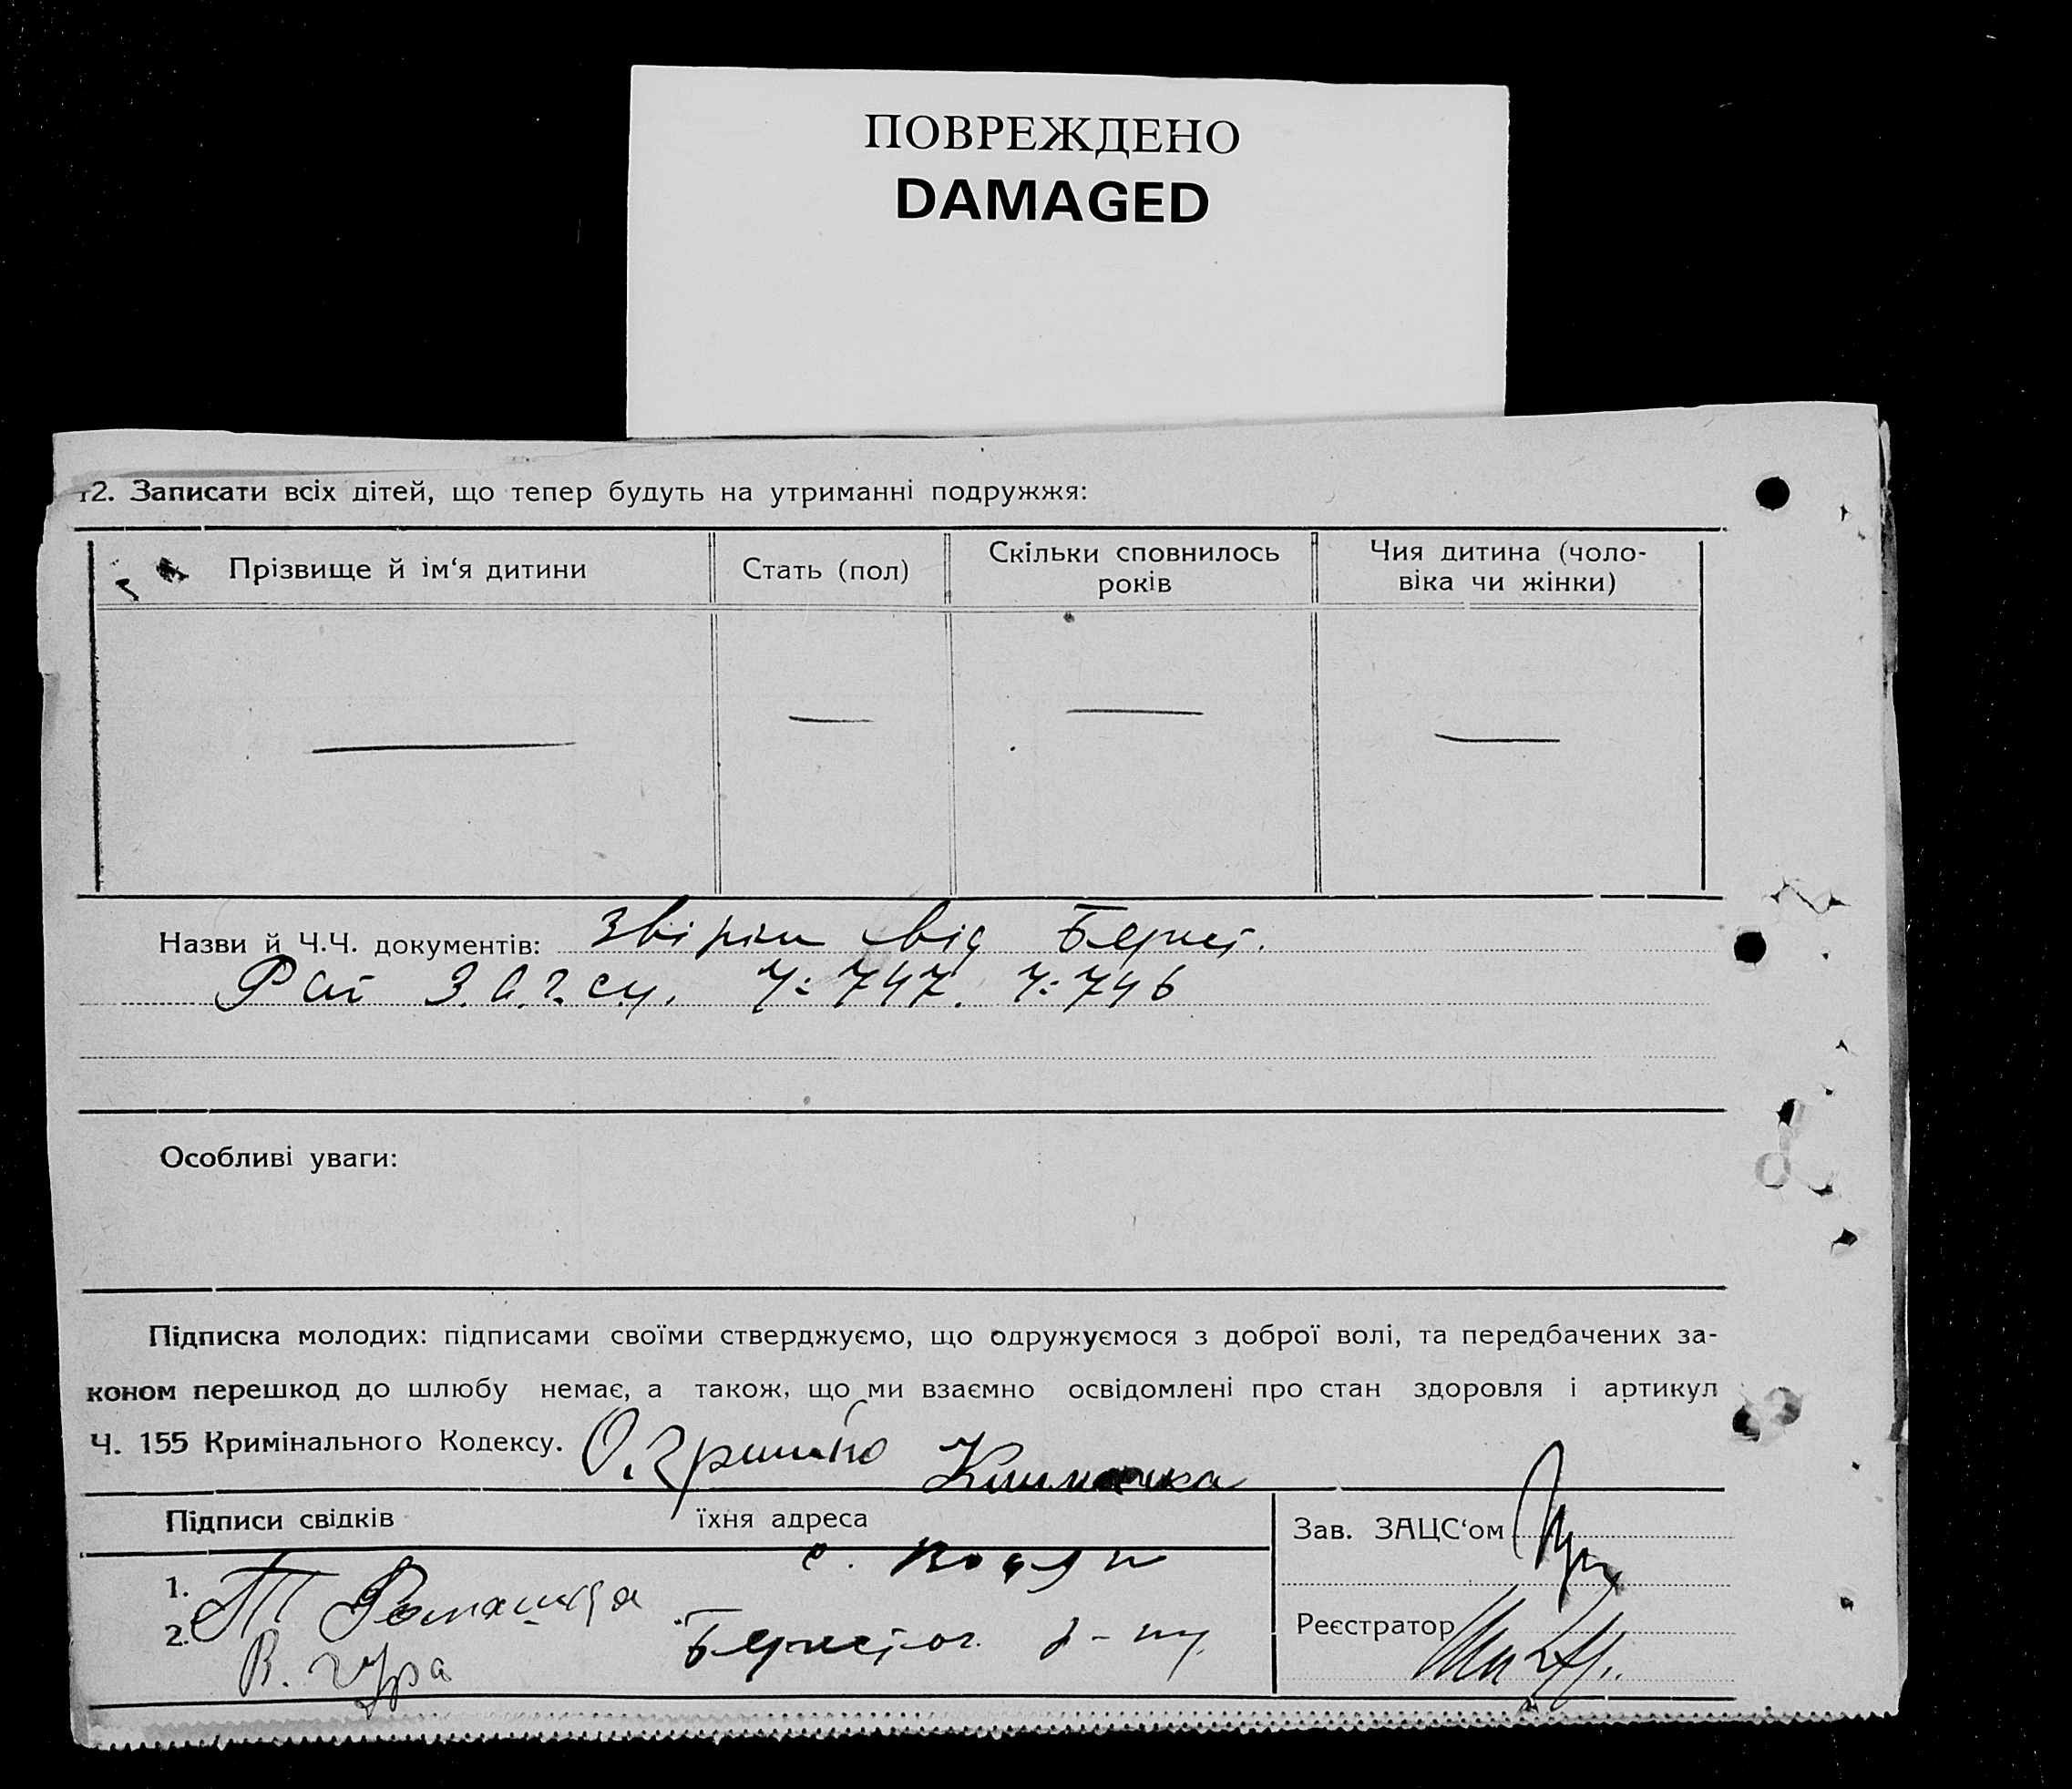 ПОВРЕЖДЕНО
DAMAGED
12. Записати всіх дітей, що тепер будуть на утриманні подружжя:
Прізвище й ім‘я дитини
Стать (пол)
Скільки сповнилось
років
Чия дитина (чоло-
віка чи жінки)
Назви й Ч.Ч. документів: від
Рай З.А.Г.Су. Ч: 747. Ч: 746
Особливі уваги:
Підписка молодих: підписами своїми стверджуємо, що одружуємося з доброї волі, та передбачених за-
коном перешкод до шлюбу немає, а також, що ми взаємно освідомлені про стан здоровля і артикул
Ч. 155 Кримінального Кодексу. О.
Підписи свідків
їхня адреса
Зав. ЗАЦС‘ом
1. с.
2.
В. Гура
Реєстратор